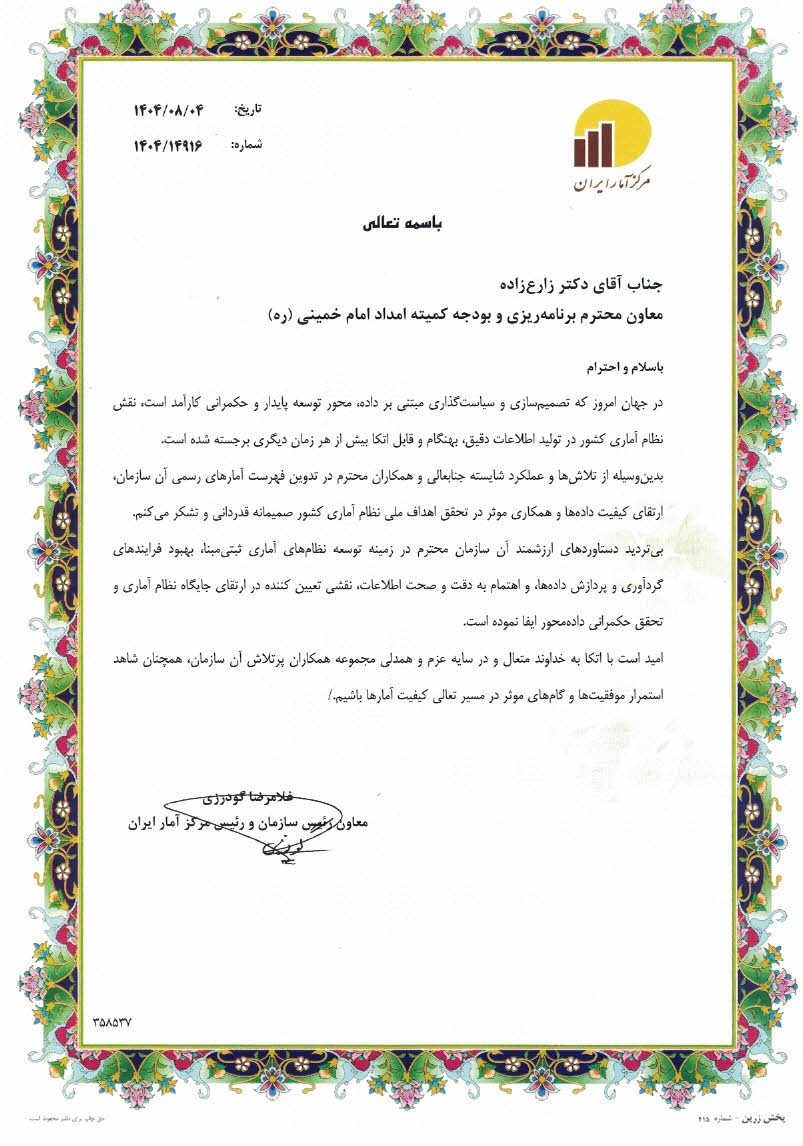 تاریخ: ۱۴۰۴/۰۸/۰۴
شماره: ۱۴۰۴/۱۴۹۱۶
مرکز آمار ایران
باسمه تعالی
جناب آقای دکتر زارع‌زاده
معاون محترم برنامه‌ریزی و بودجه کمیته امداد امام خمینی (ره)
باسلام و احترام
در جهان امروز که تصمیم‌سازی و سیاست‌گذاری مبتنی بر داده، محور توسعه پایدار و حکمرانی کارآمد است، نقش
نظام آماری کشور در تولید اطلاعات دقیق، بهنگام و قابل اتکا بیش از هر زمان دیگری برجسته شده است.
بدین‌وسیله از تلاش‌ها و عملکرد شایسته جنابعالی و همکاران محترم در تدوین فهرست آمارهای رسمی آن سازمان،
ارتقای کیفیت داده‌ها و همکاری موثر در تحقق اهداف ملی نظام آماری کشور صمیمانه قدردانی و تشکر می‌کنم.
بی‌تردید دستاوردهای ارزشمند آن سازمان محترم در زمینه توسعه نظام‌های آماری ثبتی‌مبنا، بهبود فرایندهای
گردآوری و پردازش داده‌ها، و اهتمام به دقت و صحت اطلاعات، نقشی تعیین کننده در ارتقای جایگاه نظام آماری و
تحقق حکمرانی داده‌محور ایفا نموده است.
امید است با اتکا به خداوند متعال و در سایه عزم و همدلی مجموعه همکاران پرتلاش آن سازمان، همچنان شاهد
استمرار موفقیت‌ها و گام‌های موثر در مسیر تعالی کیفیت آمارها باشیم./
غلامرضا گودرزی
معاون رئیس سازمان و رئیس مرکز آمار ایران
۳۵۸۵۳۷
پخش زرین - شماره ۴۱۵
حق چاپ برای ناشر محفوظ است